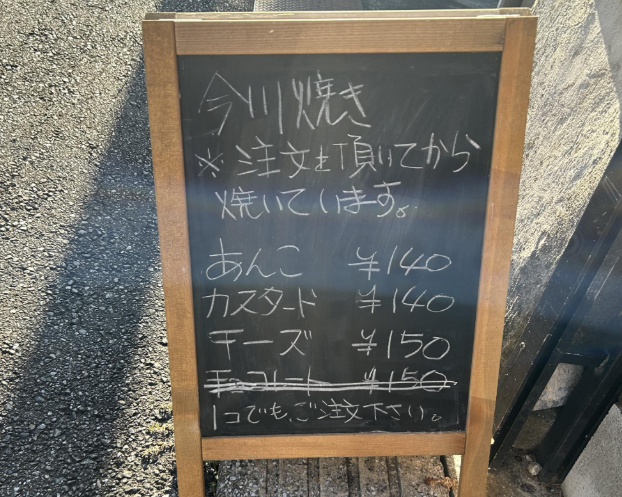 今川焼き
※注文を頂けてから
焼いています。
あんこ ¥140
カスタード ¥140
チーズ ¥150
チョコレート ¥150
1コでも、ご注文下さい。